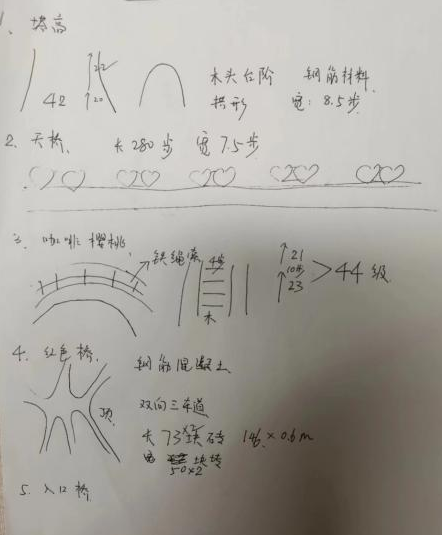 1、塔高
42
↑22
↑20
木头台阶 钢筋材料
拱形 宽：8.5步
2. 天桥、 长280步 宽7.5步
3. 咖啡樱桃
铁绳索
木
↑21
10步
↑23
>44级
4. 红色桥、 钢筋混凝土
顶
双向三车道
长73×2块砖 146×0.6m
宽 块砖
50×2
5. 入口桥